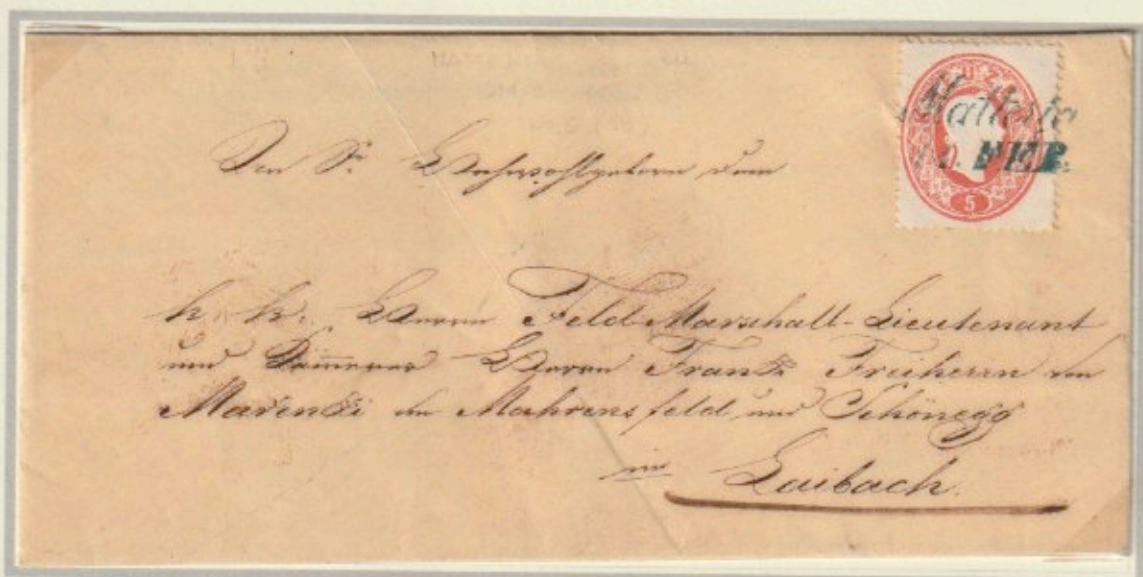 KREUZER
5
FEB.
Hochwohlgeboren dem
k. k. Herrn Feld-Marschall-Lieutenant
und Herrn Franz Freiherrn von
Marenzi in Mahrensfeld und Schönegg
in Laibach.